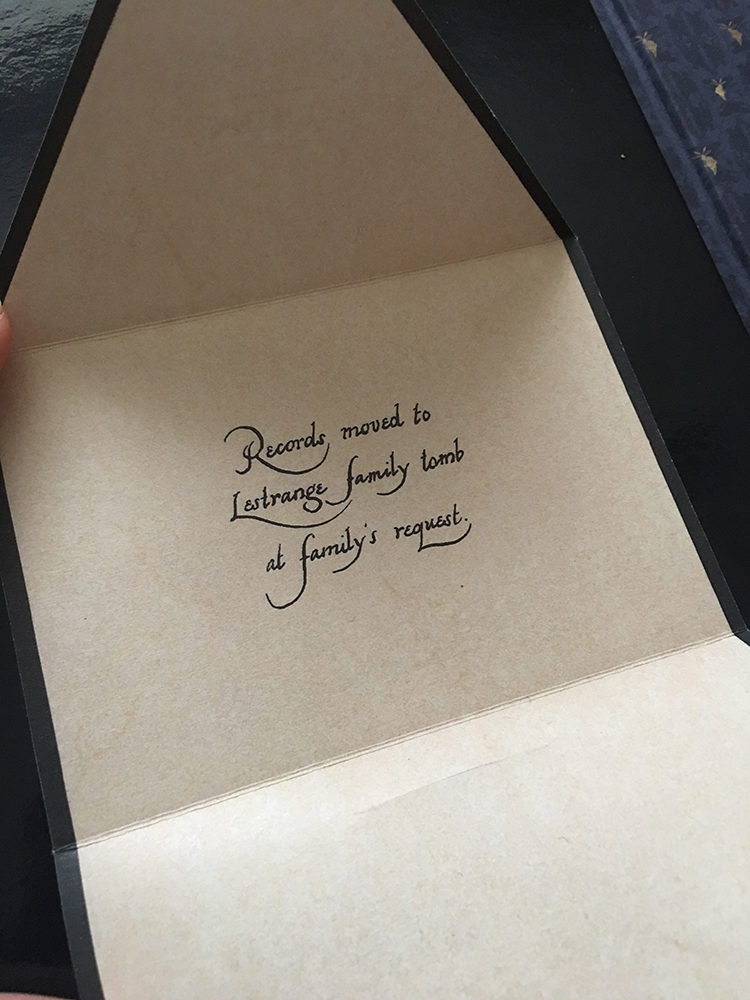 Records moved to
Lestrange family tomb
at family's request.